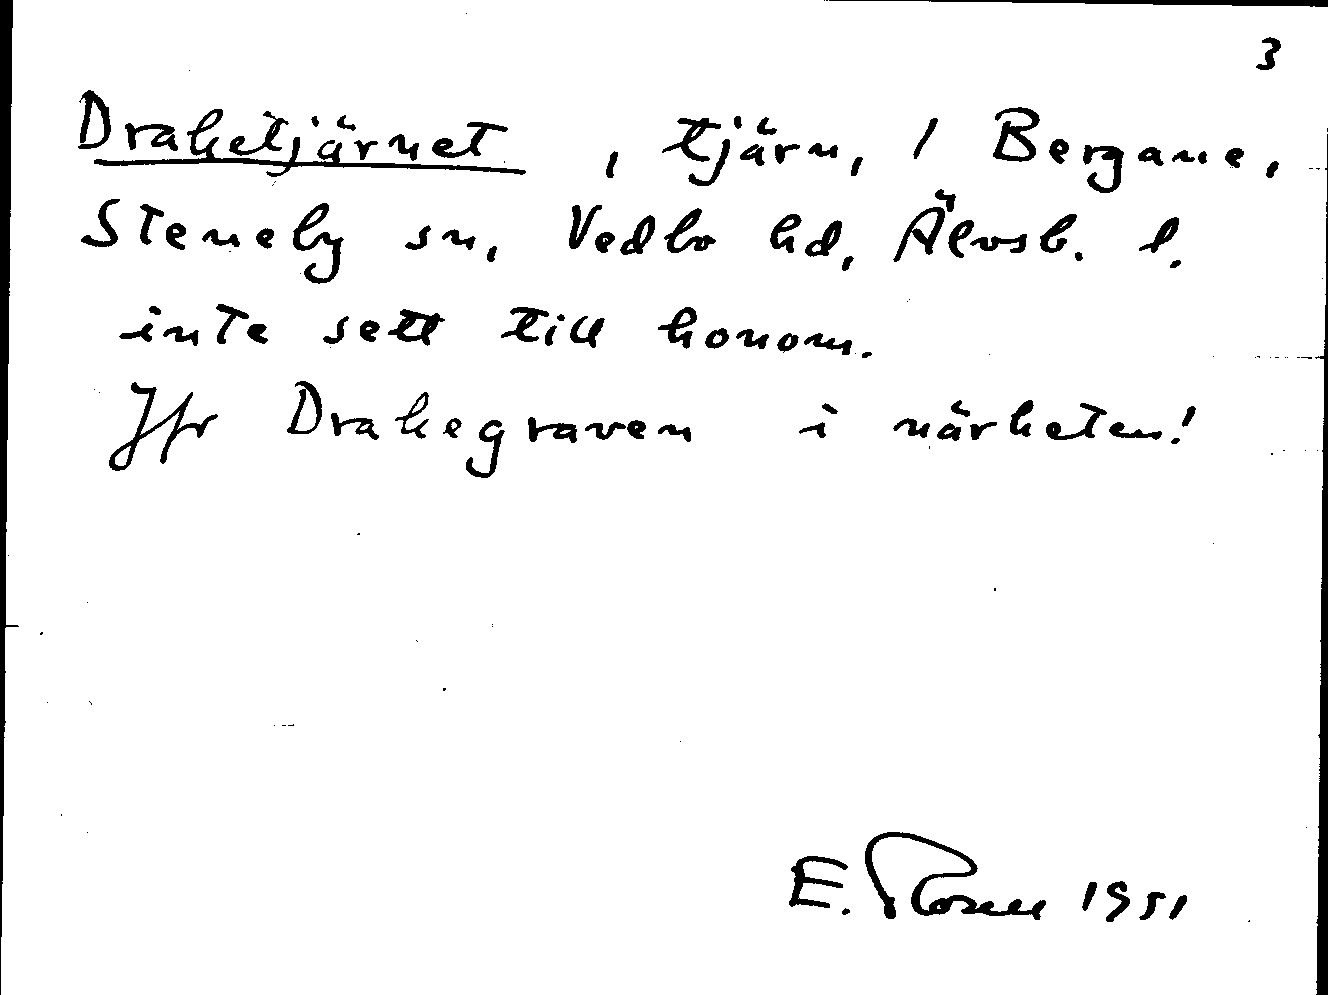 3
Draketjärnet, tjärn, 1 Bergane,
Steneby sn, Vedbo hd, Älvsb. l.
inte sett till honom.
Jfr Drakegraven i närheten!
E. Rosell 1951